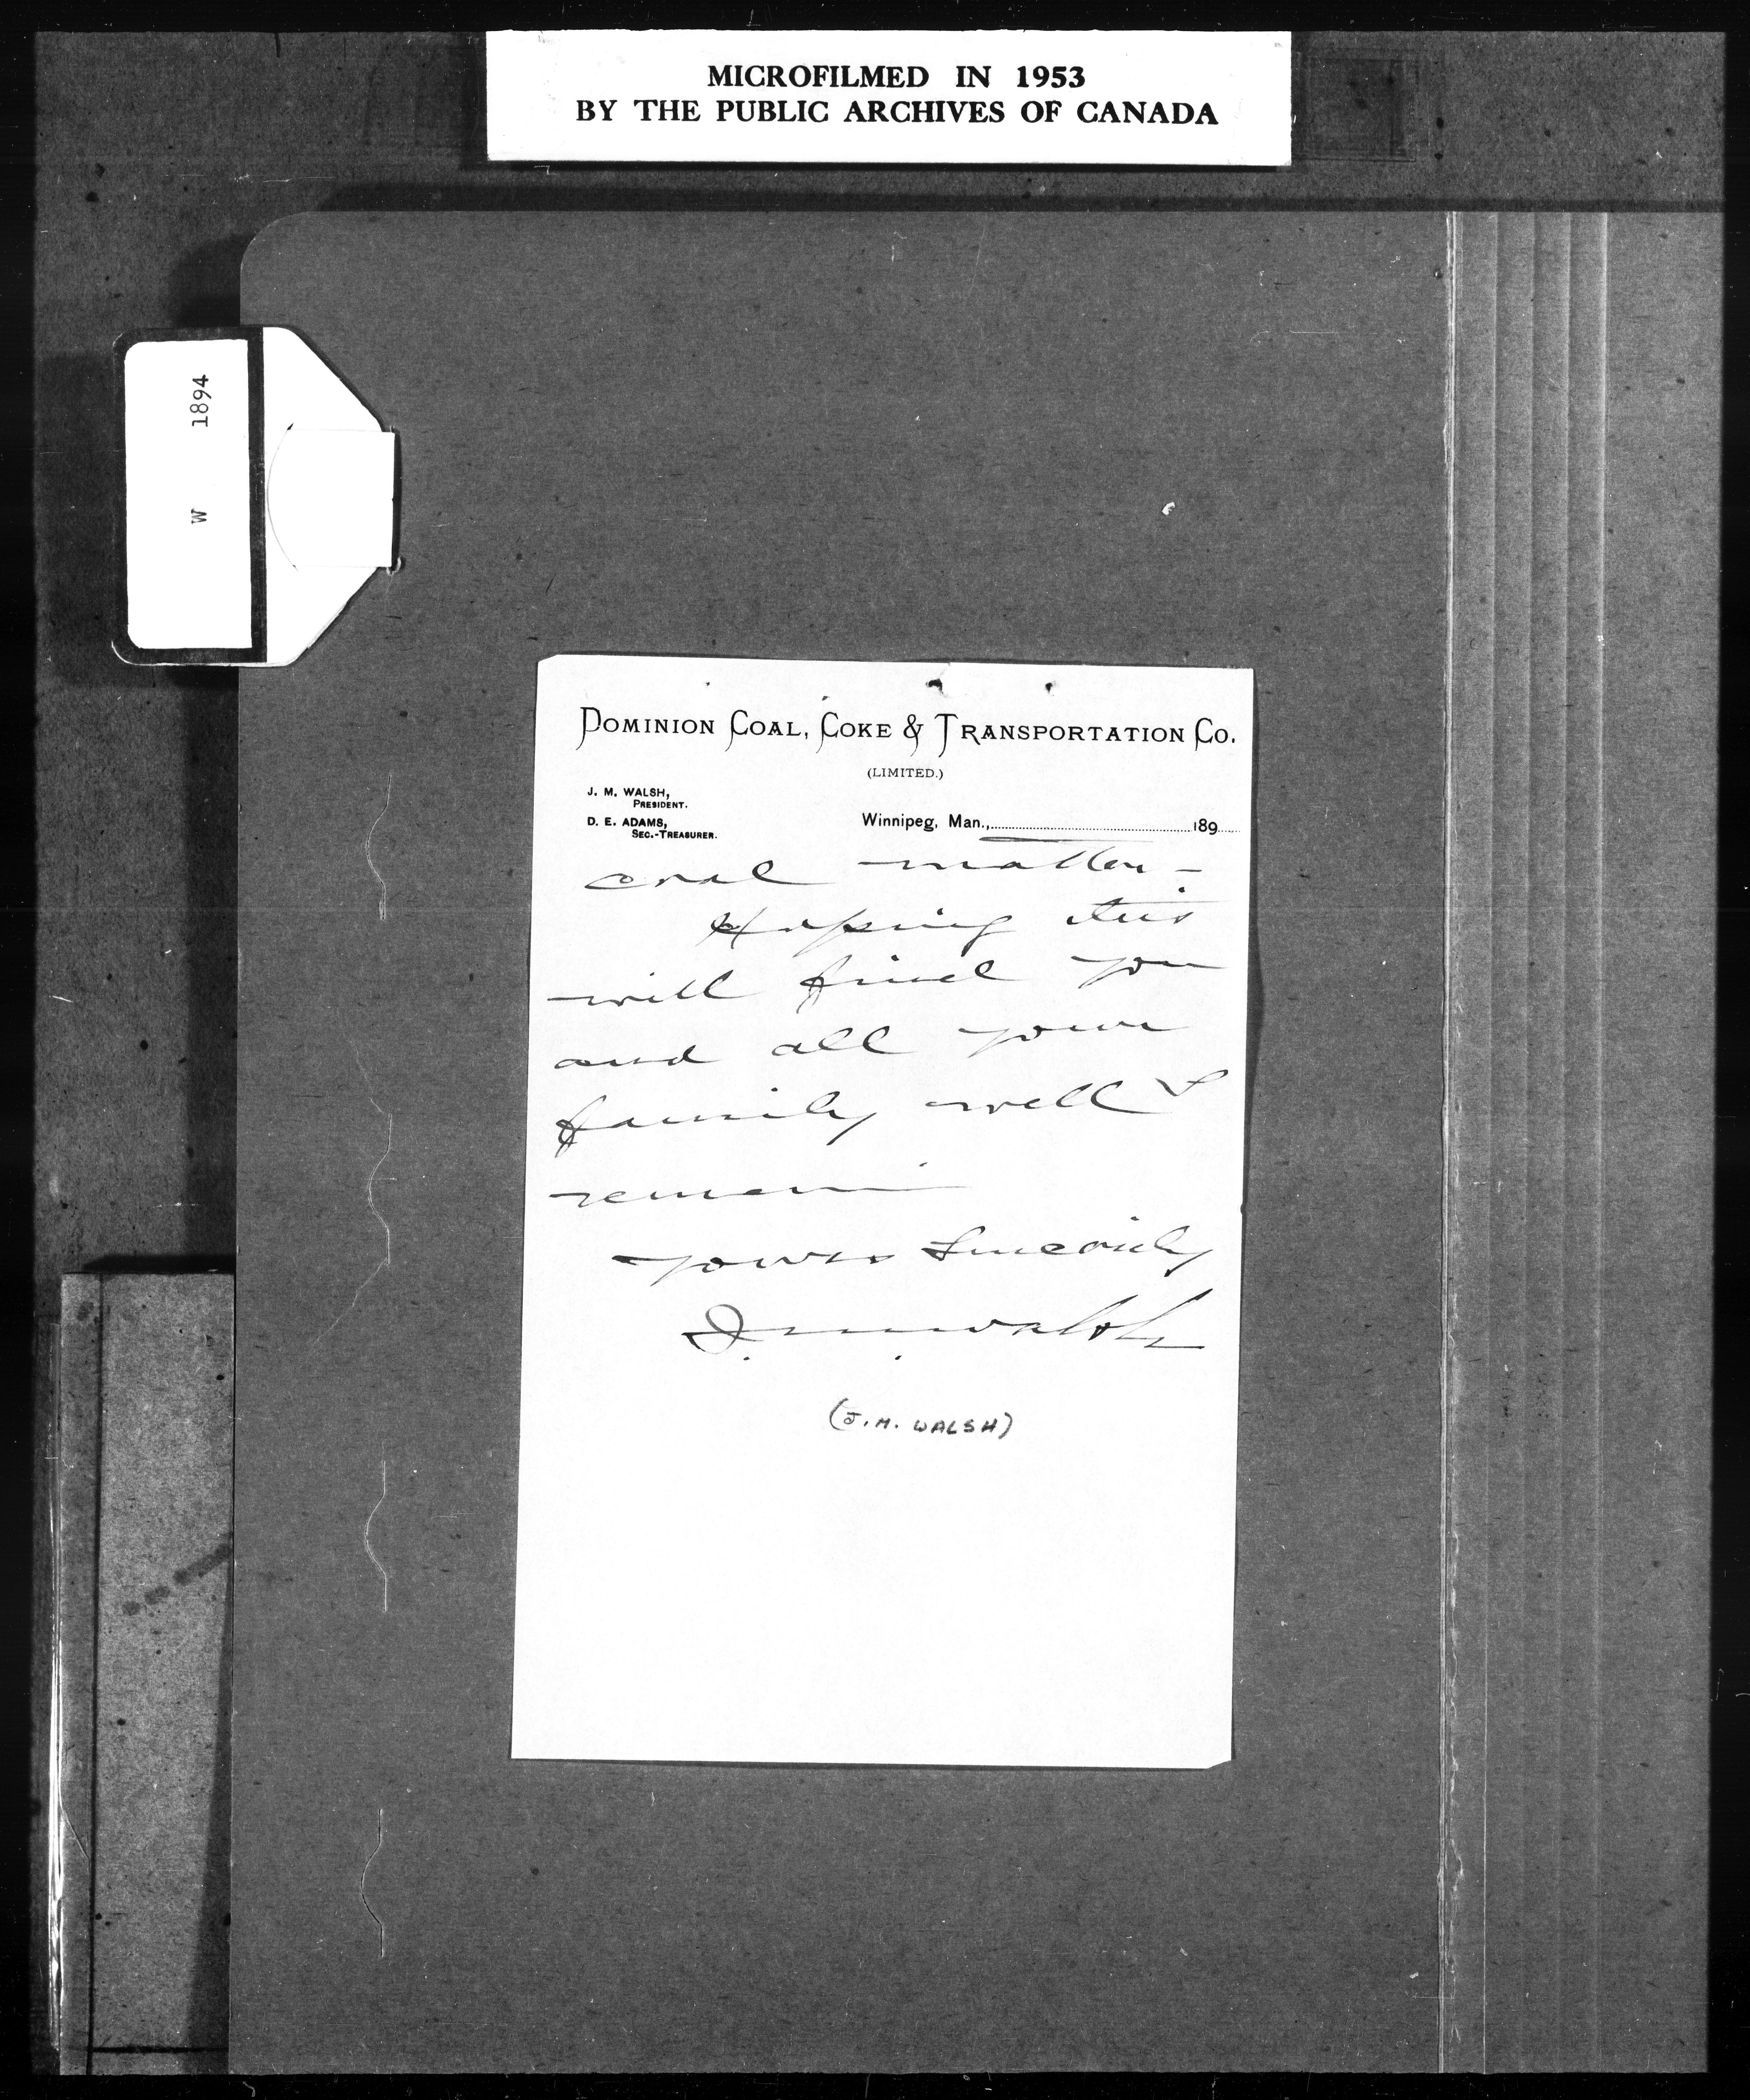 MICROFILMED IN 1953
BY THE PUBLIC ARCHIVES OF CANADA
W 1894
DOMINION COAL, COKE & TRANSPORTATION CO.
(LIMITED.)
J. M. WALSH,
PRESIDENT.
D. E. ADAMS,
SEC.-TREASURER.
Winnipeg, Man., 189
coal matter -
Hoping this
will find you
and all your
family well I
remain
yours Sincerely
J. M. Walsh
(J.M. WALSH)